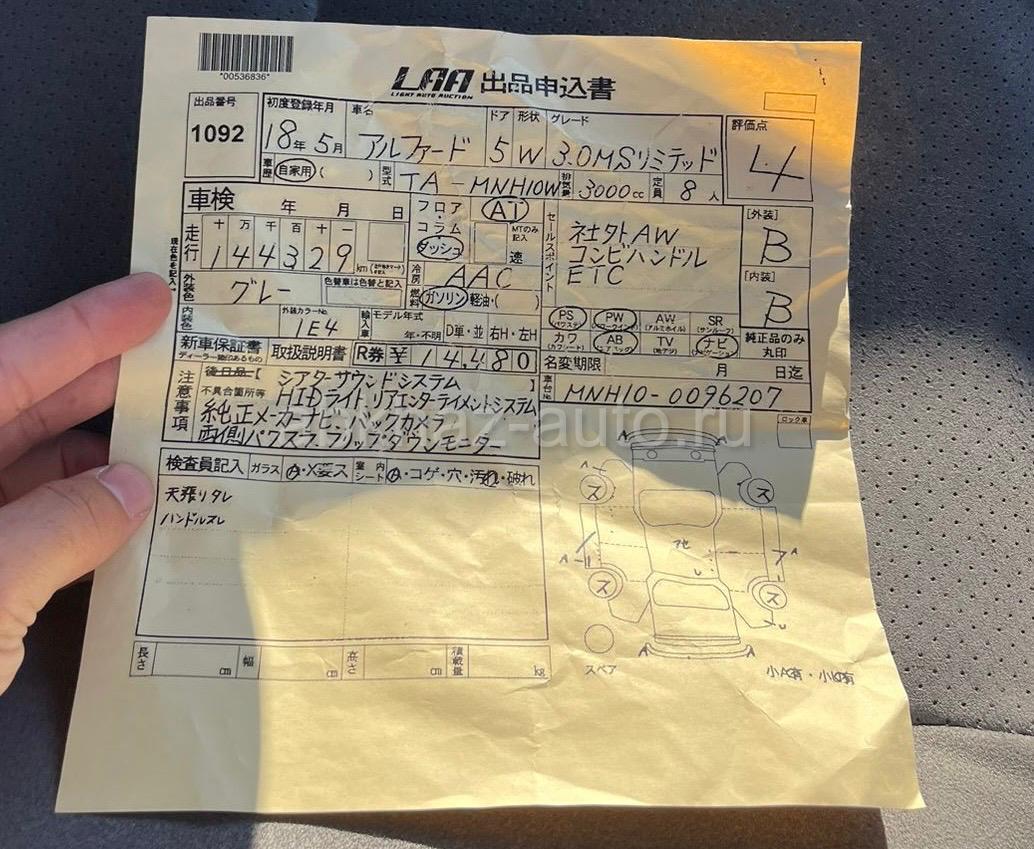 *00536836*
LAA 出品申込書
LIGHT AUTO AUCTION
出品番号
1092
初度登録年月
18年5月
車名
アルファード
ドア
5
形状
W
グレード
3.0MSリミテッド
評価点
4
車歴
自家用 ( )
型式
TA-MNH10W
排気量
3000cc
定員
8人
車検
年 月 日
走行
十万千百十一
144329
km
現在色を記入
外装色
グレー
色替車は色替と記入
内装色
外装カラーNo.
1E4
フロア・コラム
ダッシュ
AT
MTのみ記入
速
冷房
AAC
燃料
ガソリン 軽油・( )
輸入車
モデル年式
年・不明
D車・並
右H・左H
セールスポイント
社外AW
コンビハンドル
ETC
[外装]
B
[内装]
B
PS
PW
AW
(アルミホイル)
SR
(サンルーフ)
カワ
AB
TV
(地デジ)
ナビ
純正品のみ丸印
新車保証書
ディーラー捺印あるもの
取扱説明書
R券
¥14,480
名変期限
月 日迄
車台No.
MNH10-0096207
後日品
注意事項
不具合箇所等
シアターサウンドシステム
HIDライト リアエンターテイメントシステム
純正メーカーナビ バックカメラ
両側パワスラ フリップダウンモニター
almaz-auto.ru
ロック車
検査員記入
ガラス
A・X要ス
室内シート
A・コゲ・穴・汚れ・破れ
天張りタレ
ハンドルスレ
ス
ス
ス
ス
A
A
A
スペア
小A有・小U有
長さ
cm
幅
cm
高さ
cm
積載量
kg